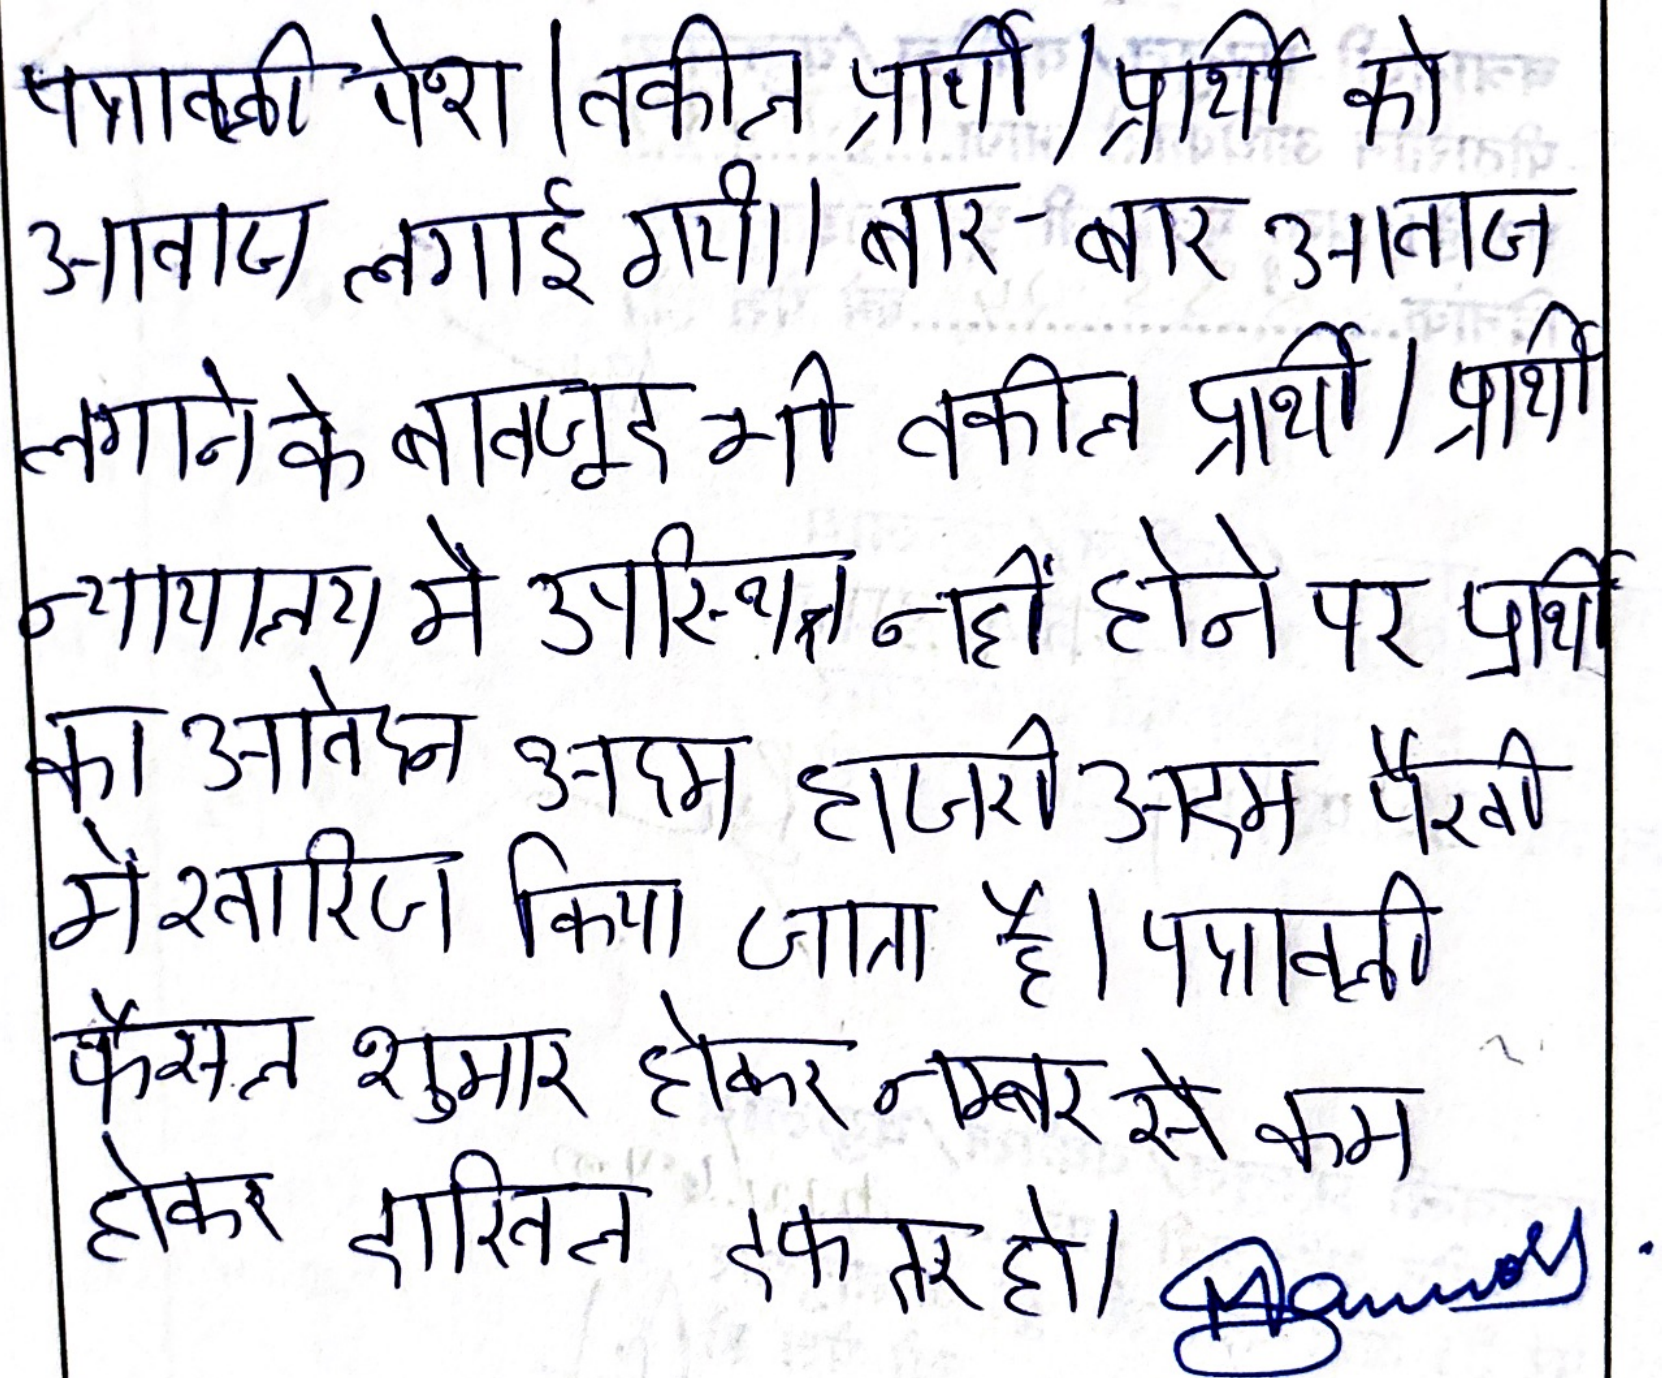 पत्रावली पेश। वकील प्रार्थी/प्रार्थी को
आवाज लगाई गयी। बार-बार आवाज
लगाने के बावजूद भी वकील प्रार्थी/प्रार्थी
न्यायालय में उपस्थित नहीं होने पर प्रार्थी
का आवेदन अदम हाजरी अदम पैरवी
में खारिज किया जाता है। पत्रावली
फैसल शुमार होकर नम्बर से कम
होकर दाखिल दफ्तर हो।